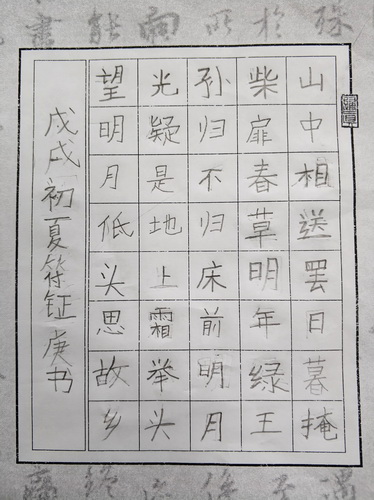 山中相送罢日暮掩
柴扉春草明年绿王
孙归不归床前明月
光疑是地上霜举头
望明月低头思故乡
戊戌初夏符钲庚书